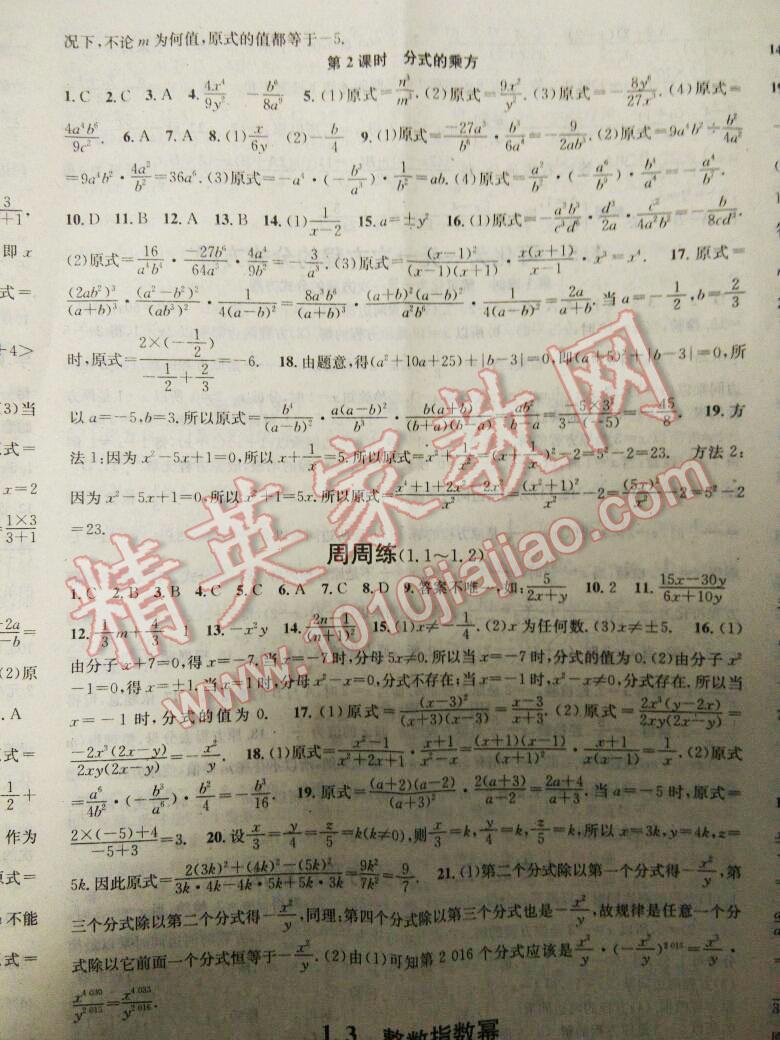 况下,不论 m 为何值,原式的值都等于-5.
第 2 课时 分式的乘方
1. C 2. C 3. A 4. 4x⁴/9y² -b⁶/8a⁹ 5. (1)原式=n³/m³. (2)原式=9x²/y². (3)原式=-8y⁶/27x³. (4)原式=
4a⁴b⁶/9c². 6. A 7. A 8. (1)x/6y (2)-b/4 9. (1)原式=-27a³/b⁶·b³/6a⁴=-9/2ab³. (2)原式=9a⁴b²÷b²/4a²
=9a⁴b²·4a²/b²=36a⁶. (3)原式=-a⁴·(-b³/a³)·1/b²=ab. (4)原式=a²/b²·(-a³/b³)·b⁴/a⁴=-a⁴/b⁴.
10. D 11. B 12. A 13. B 14. (1)1/(x-2) 15. a=±y² 16. (1)原式=-a³b³/c³d·d²/2a·c²/4a²b²=-b/8cd².
(2)原式=16/a⁴b⁴·-27b⁶/64a³·4a⁴/9b²=-3/a³. (3)原式=(x-1)²/(x-1)(x+1)·x(x+1)/(x-1)·x³=x⁴. 17. 原式=
(2ab²)³/(a+b)³·(a²-b²)²/(ab³)²·1/4(a-b)²=8a³b⁶/(a+b)³·(a+b)²(a-b)²/a²b⁶·1/4(a-b)²=2a/(a+b). 当 a=-1/2,b=2/3
时,原式=2×(-1/2)/(-1/2+2/3)=-6. 18. 由题意,得(a²+10a+25)+|b-3|=0,即(a+5)²+|b-3|=0,所
以 a=-5,b=3. 所以原式=b⁴/(a-b)²·a(a-b)²/b³·b(a+b)/(b+a)(b-a)=ab²/(b-a)=-5×3²/(3-(-5))=-45/8. 19. 方
法 1:因为 x²-5x+1=0,所以 x+1/x=5. 所以原式=x²+1/x²=(x+1/x)²-2=5²-2=23. 方法 2:
因为 x²-5x+1=0,所以 x²+1=5x. 所以原式=x⁴+1+2x²-2x²/x²=(x²+1)²/x²-2=(5x)²/x²-2=5²-2
=23.
周周练(1.1~1.2)
1. C 2. B 3. B 4. C 5. C 6. A 7. C 8. D 9. 答案不唯一,如:5/(2x+y) 10. 2 11. (15x-30y)/(6x+10y)
12. 1/3 m+4/3 1 13. -x²y 14. (2n+1)/(n+1)² 15. (1)x≠-1/4. (2)x 为任何数. (3)x≠±5. 16. (1)
由分子 x+7=0,得 x=-7. 当 x=-7 时,分母 5x≠0. 所以当 x=-7 时,分式的值为 0. (2)由分子 x²
-1=0,得 x=±1. 当 x=1 时,分母 x²-x=0,分式不存在;当 x=-1 时,x²-x≠0,分式存在. 所以当
x=-1 时,分式的值为 0. 17. (1)原式=(x-3)²/(x+3)(x-3)=(x-3)/(x+3). (2)原式=2x³(y-2x)/2xy(2x-y)=
-2x³(2x-y)/2xy(2x-y)=-x²/y. 18. (1)原式=(x²-1)/(x²+2x+1)·(x+1)/(x²-x)=(x+1)(x-1)/(x+1)²·(x+1)/x(x-1)=1/x. (2)原式
=a⁶/4b²·(-b³/a⁶)·b²/4=-b³/16. 19. 原式=(a+2)(a-2)/(a+3)²·2(a+3)/(a-2)=(2a+4)/(a+3). 当 a=-5 时,原式=
(2×(-5)+4)/(-5+3)=3. 20. 设x/3=y/4=z/5=k(k≠0),则x/3=k,y/4=k,z/5=k,所以 x=3k,y=4k,z=
5k. 因此原式=(2(3k)²+(4k)²-(5k)²)/(3k·4k-4k·5k+5k·3k)=9k²/7k²=9/7. 21. (1)第二个分式除以第一个分式得-x²/y,第
三个分式除以第二个分式得-x²/y,同理;第四个分式除以第三个分式也是-x²/y,故规律是任意一个分
式除以它前面一个分式恒等于-x²/y. (2)由(1)可知第 2 016 个分式应该是x³/y·(-x²/y)²⁰¹⁵=x³/y·
x⁴⁰³⁰/y²⁰¹⁵=x⁴⁰³³/y²⁰¹⁶.
1.3 整数指数幂
精英家教网
www.1010jiajiao.com